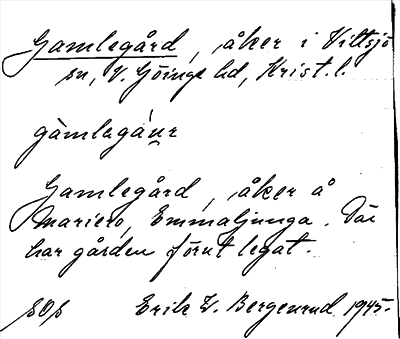 Gamlegård, åker i Vittsjö
sn, V. Göinge hd, Krist. l.
gàmlegá
Gamlegård, åker å
Mariero, Emmaljunga. Där
har gården förut legat.
Erik W. Bergenrud 1945.